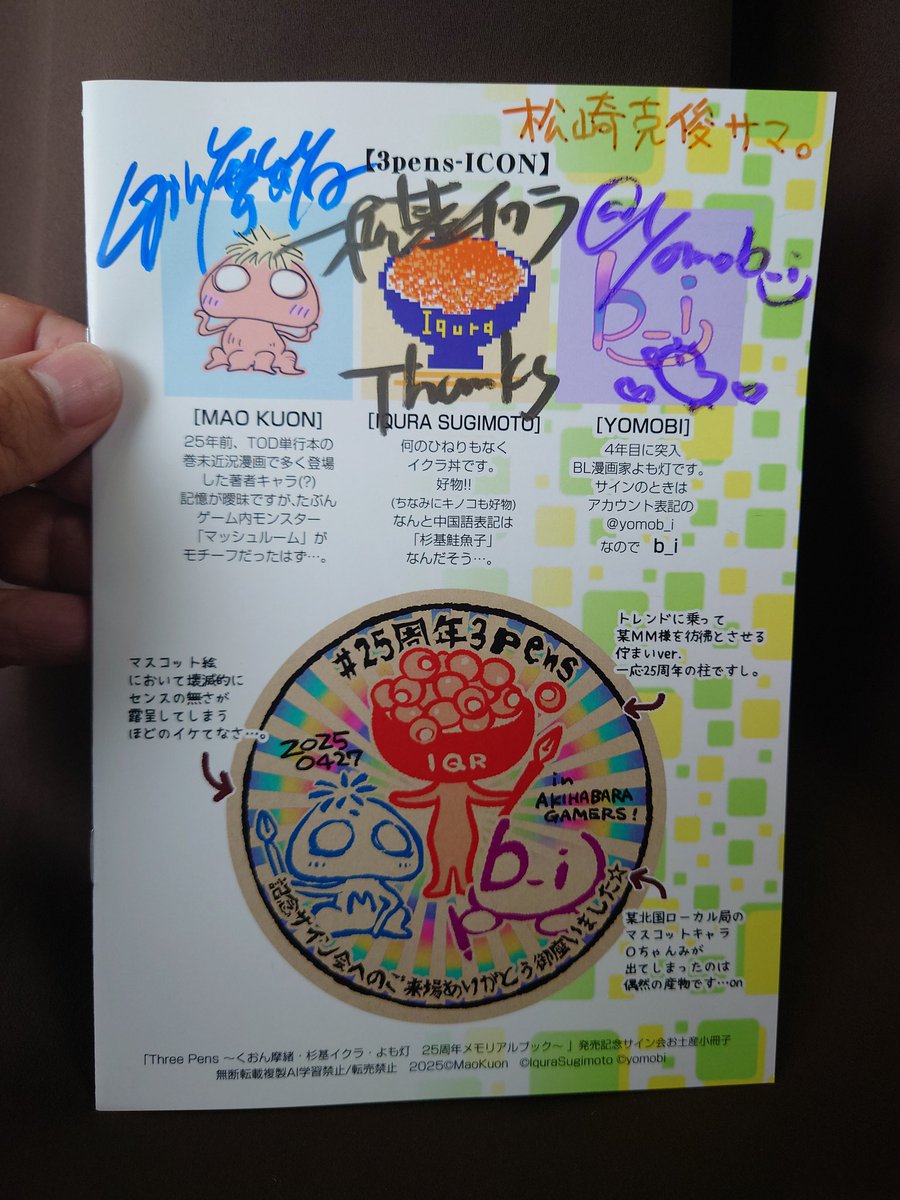 松崎克俊サマ。
【3pens-ICON】
くおん摩緒
杉基イクラ
Thanks
yomob_i
Iqura
b_i
[MAO KUON]
25年前、TOD単行本の
巻末近況漫画で多く登場
した著者キャラ(?)
記憶が曖昧ですが、たぶん
ゲーム内モンスター
「マッシュルーム」が
モチーフだったはず…。
[IQURA SUGIMOTO]
何のひねりもなく
イクラ丼です。
好物!!
(ちなみにキノコも好物)
なんと中国語表記は
「杉基鮭魚子」
なんだそう…。
[YOMOBI]
4年目に突入
BL漫画家よも灯です。
サインのときは
アカウント表記の
@yomob_i
なので b_i
トレンドに乗って
某MM様を彷彿とさせる
佇まいver.
一応25周年の柱ですし。
マスコット絵
において壊滅的に
センスの無さが
露呈してしまう
ほどのイケてなさ…。
#25周年3Pens
2025
0427
IQR
in
AKIHABARA
GAMERS!
b_i
記念サイン会へのご来場ありがとう御座いました☆
某北国ローカル局の
マスコットキャラ
Oちゃんみが
出てしまったのは
偶然の産物です…on
「Three Pens 〜くおん摩緒・杉基イクラ・よも灯 25周年メモリアルブック〜 」発売記念サイン会お土産小冊子
無断転載複製AI学習禁止/転売禁止 2025©MaoKuon ©IquraSugimoto ©yomobi